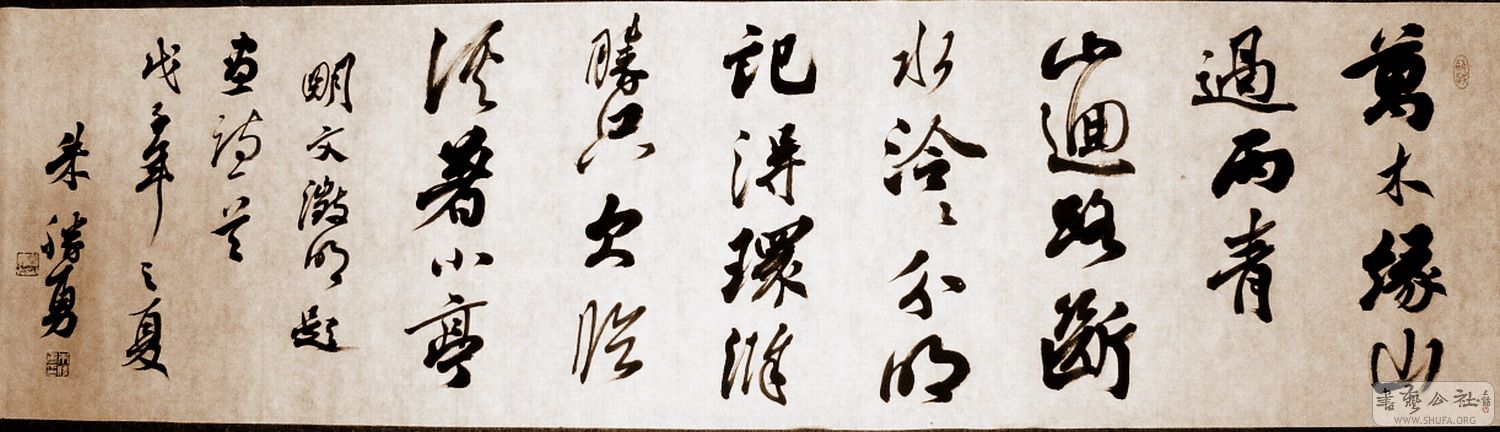 萬木緣山
過雨青
山迴路斷
水泠〻分明
記得環滁
勝只欠臨
溪著小亭
明文徵明題
畫詩首
戊子年之夏
朱勝勇
書藝公社
WWW.SHUFA.ORG